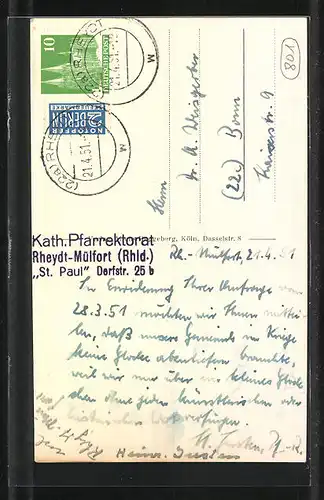 10
DEUTSCHE POST
NOTOPFER
2 BERLIN
STEUERMARKE
(22a) RHEYDT
21.4.51.
M
(22a) RHEYDT
21.4.51.
M
801
Herrn
Dr. A. Weisgerber
(22c) Bonn
Kaiserstr. 9
Köln, Dasselstr. 8
Kath. Pfarrektorat
Rheydt-Mülfort (Rhld.)
„St. Paul" Dorfstr. 25 b
Rh.-Mülfort, 21.4.51
In Erwiderung Ihrer Anfrage vom
28.3.51 möchten wir Ihnen mittei-
len, daß unsere Gemeinde im Kriege
keine Glocke abzuliefern brauchte,
weil wir nur über ein kleines Glöck-
chen ohne jeden künstlerischen oder
historischen Wert verfügen.